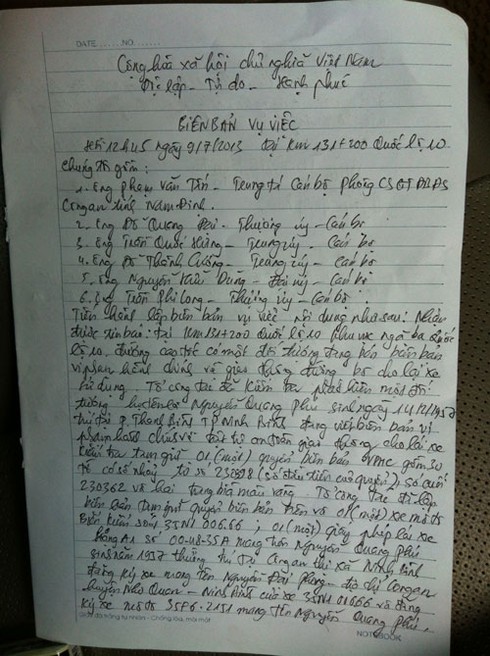 DATE ........ NO ........
Cộng hòa xã hội chủ nghĩa Việt Nam
Độc lập - Tự do - Hạnh phúc
BIÊN BẢN VỤ VIỆC
Hồi 12h45 ngày 9/7/2013 tại Km 131+200 Quốc lộ 10
Chúng tôi gồm:
1. Ông Phạm Văn Tiến - Trung tá Cán bộ Phòng CSGT
Công an tỉnh Nam Định.
2. Ông Đỗ Quang Đại - Thượng úy - Cán bộ
3. Ông Trần Quốc Hùng - Trung úy - Cán bộ
4. Ông Đỗ Thành Cương - Trung úy - Cán bộ
5. Ông Nguyễn Hữu Dũng - Đại úy - Cán bộ
6. Ông Trần Phi Long - Thượng úy - Cán bộ
Tiến hành lập biên bản vụ việc nội dung như sau: Nhận
được tin báo: tại Km 131+200 Quốc lộ 10 khu vực ngã ba Quốc
lộ 10 đường cao tốc có một đối tượng đang bán biên bản
vi phạm hành chính về giao thông đường bộ cho lái xe
sử dụng. Tổ công tác đã kiểm tra phát hiện một đối
tượng họ tên là Nguyễn Quang Phú sinh ngày
trú tại P. Thanh Bình TP Ninh Bình đang viết biên bản vi
phạm hành chính về trật tự an toàn giao thông cho lái xe
kiểm tra tạm giữ 01 (một) quyển biên bản VPHC gồm
tờ có số nhảy từ số (số đầu tiên của quyển), số cuối
230362 và hai trang bìa màu vàng. Tổ công tác đã lập
biên bản tạm giữ quyển biên bản trên và 01 (một) xe môtô
Biển kiểm soát 35N1 00666; 01 (một) giấy phép lái xe
hạng A1 số mang tên Nguyễn Quang Phú
sinh năm 1957 thường trú tại Công an thị xã Ninh Bình
đăng ký xe mang tên Nguyễn Đại Phong - địa chỉ Công an
huyện Nho Quan - Ninh Bình của xe 35N1 01666 và đăng
ký xe môtô 35F6-2151 mang tên Nguyễn Quang Phú.
NOTEBOOK